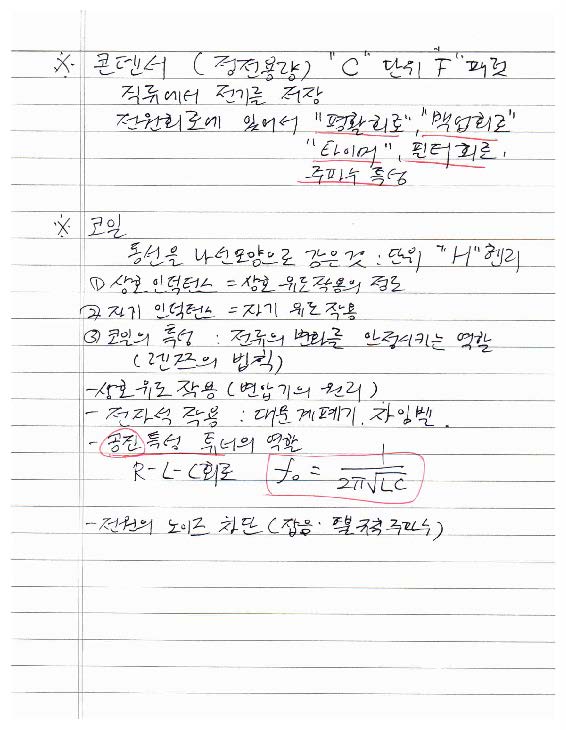 ※ 콘덴서 (정전용량) "C" 단위 "F" 패럿
직류에서 전기를 저장
전원회로에 있어서 "평활회로", "백업회로"
"타이머", 필터회로,
주파수 특성
※ 코일
동선을 나선모양으로 감은것 : 단위 "H" 헨리
① 상호 인덕턴스 = 상호 유도작용의 정도
② 자기 인덕턴스 = 자기 유도작용
③ 코일의 특성 : 전류의 변화를 안정시키는 역할
(렌즈의 법칙)
- 상호유도 작용 (변압기의 원리)
- 전자석 작용 : 대문개폐기, 차임벨.
- 공진특성 튜너의 역할
R-L-C회로 f₀ = 1/2π√LC
- 전원의 노이즈 차단 (잡음·주파수)